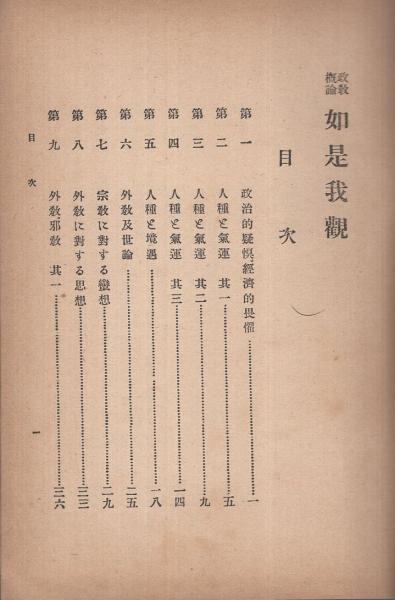 政教概論 如是我觀
目次
第一 政治的疑惧、經濟的畏懼……一
第二 人種と氣運 其一……五
第三 人種と氣運 其二……九
第四 人種と氣運 其三……一四
第五 人種と境遇……一八
第六 外敎及世論……二五
第七 宗敎に對する蠻想……二九
第八 外敎に對する思想……三三
第九 外敎、邪敎 其一……三六
目次
一